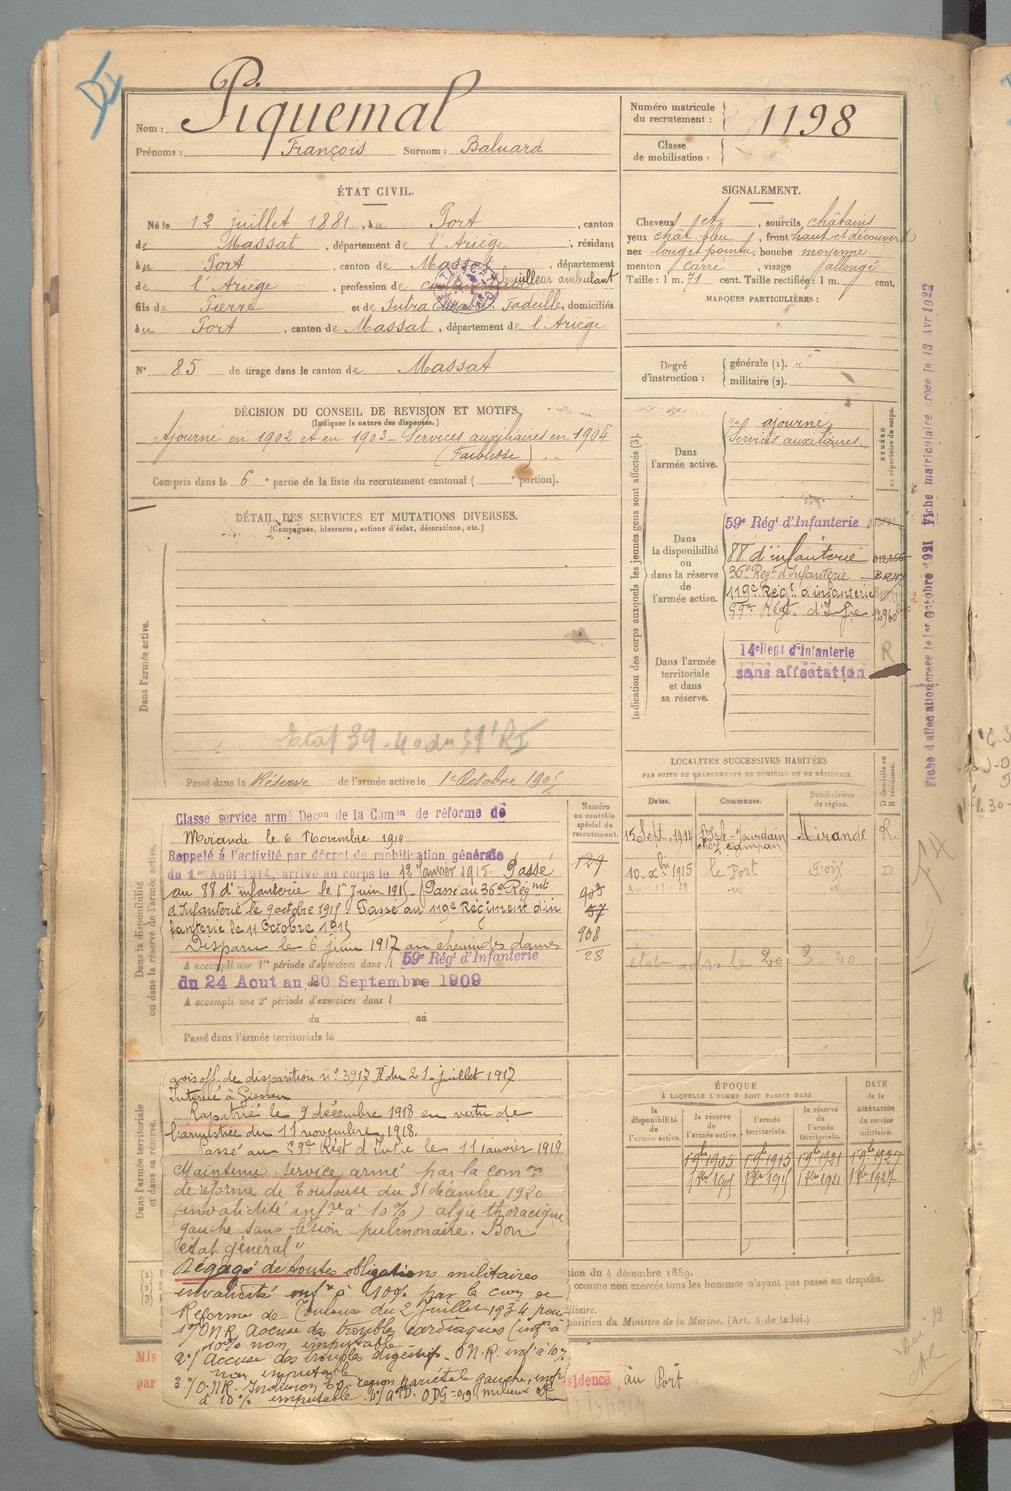 Piquemal
Nom :
Prénoms : François Surnom : Baluard
Numéro matricule
du recrutement : 1198
Classe
de mobilisation :
ÉTAT CIVIL.
Né le 12 juillet 1881, à Port, canton
de Massat, département de l'Ariège, résidant
à Port, canton de Massat, département
de l'Ariège, profession de ambulant
fils de Pierre et de Sutra Fadeille, domiciliés
à Port, canton de Massat, département de l'Ariège
N° 85 de tirage dans le canton de Massat
SIGNALEMENT.
Cheveux et, sourcils châtains
yeux chât. bleu, front haut et découvert
nez long et pointu, bouche moyenne
menton carré, visage allongé
Taille : 1 m. 71 cent. Taille rectifiée : 1 m. cent.
MARQUES PARTICULIÈRES :
Degré
d'instruction :
générale (1).
militaire (2).
DÉCISION DU CONSEIL DE REVISION ET MOTIFS.
(Indiquer la nature des dispenses.)
Ajourné en 1902 et en 1903 - Services auxiliaires en 1904
(Faiblesse)
Compris dans la 6e partie de la liste du recrutement cantonal ( e portion).
DÉTAIL DES SERVICES ET MUTATIONS DIVERSES.
(Campagnes, blessures, actions d'éclat, décorations, etc.)
Dans l'armée active.
Passé dans la Réserve de l'armée active le 1er Octobre 1905
Indication des corps auxquels les jeunes gens sont affectés (3).
NUMÉRO
au répertoire du corps.
Dans
l'armée active.
ajourné
Services auxiliaires
Dans
la disponibilité
ou
dans la réserve
de
l'armée active.
59e Régt d'Infanterie
88 d'infanterie
36e Regt d'Infanterie
119e Régt d'infanterie
59e Régt d'Infie
Dans l'armée
territoriale
et dans
sa réserve.
14e Regt d'infanterie
sans affectation
R
Fiche matriculaire créée le 13 Avr 1922
LOCALITÉS SUCCESSIVES HABITÉES
PAR SUITE DE CHANGEMENTS DE DOMICILE OU DE RÉSIDENCE.
Dates.
Communes.
Subdivisions
de région.
D domicile ou
R résidence.
15 Sept. 1914 l'Isle-Jourdain Mirande R.
10 Xbre 1915 le Port Foix D
Dans la disponibilité
ou dans la réserve de l'armée active.
Numéro
au contrôle
spécial du
recrutement.
129
57
908
28
Classé service armé Décon de la Comon de réforme de
Mirande le 6 Novembre 1914
Rappelé à l'activité par décret de mobilisation générale
du 1er Août 1914, arrivé au corps le 12 Janvier 1915. Passé
au 88 d'infanterie le 1er Juin 1915 - Passé au 36e Régiment
d'Infanterie le 9 octobre 1915. Passé au 119e Régiment d'in
fanterie le 11 Octobre 1915
Disparu le 6 juin 1917 au chemin des dames
A accompli une 1re période d'exercices dans l 59e Régt d'Infanterie
du 24 Aout au 20 Septembre 1909
A accompli une 2e période d'exercices dans l
du au
Passé dans l'armée territoriale le
Dans l'armée territoriale
et dans sa réserve.
avis off. de disparition n° 3917 du 21 juillet 1917
Interné à Giessen
Rapatrié le 9 décembre 1918 en vertu de
l'armistice du 11 novembre 1918.
Passé au 59e Régt d'Infie le 11 janvier 1919
Maintenu service armé par la comon
de réforme de Toulouse du 31 décembre 1920
(invalidité infre à 10%) algie thoracique
gauche sans lésion pulmonaire. Bon
état général"
Dégagé de toutes obligations militaires
invalidité infre à 10% par la com de
Réforme de Toulouse du 2 Juillet 1934 pour
1°/ O.N.R. Accuse des troubles cardiaques (infre à
10% non imputable
2°/ Accuse des troubles digestifs. O.N.R. inf à 10%
non imputable
3°/ O.N.R. région pariétale gauche, infre
à 10% imputable
ÉPOQUE
À LAQUELLE L'HOMME DOIT PASSER DANS
DATE
de la
LIBÉRATION
du service
militaire.
la
disponibilité
de
l'armée active.
la réserve
de
l'armée active.
l'armée
territoriale.
la réserve
de
l'armée
territoriale.
1 8bre 1905 1 8bre 1915 1 8bre 1921 1 8bre 1927
tion du 4 décembre 1889.
comme non exercés tous les hommes n'ayant pas passé au drapeau.
position du Ministre de la Marine. (Art. 4 de la loi.)
Mis
par
sidence à Port